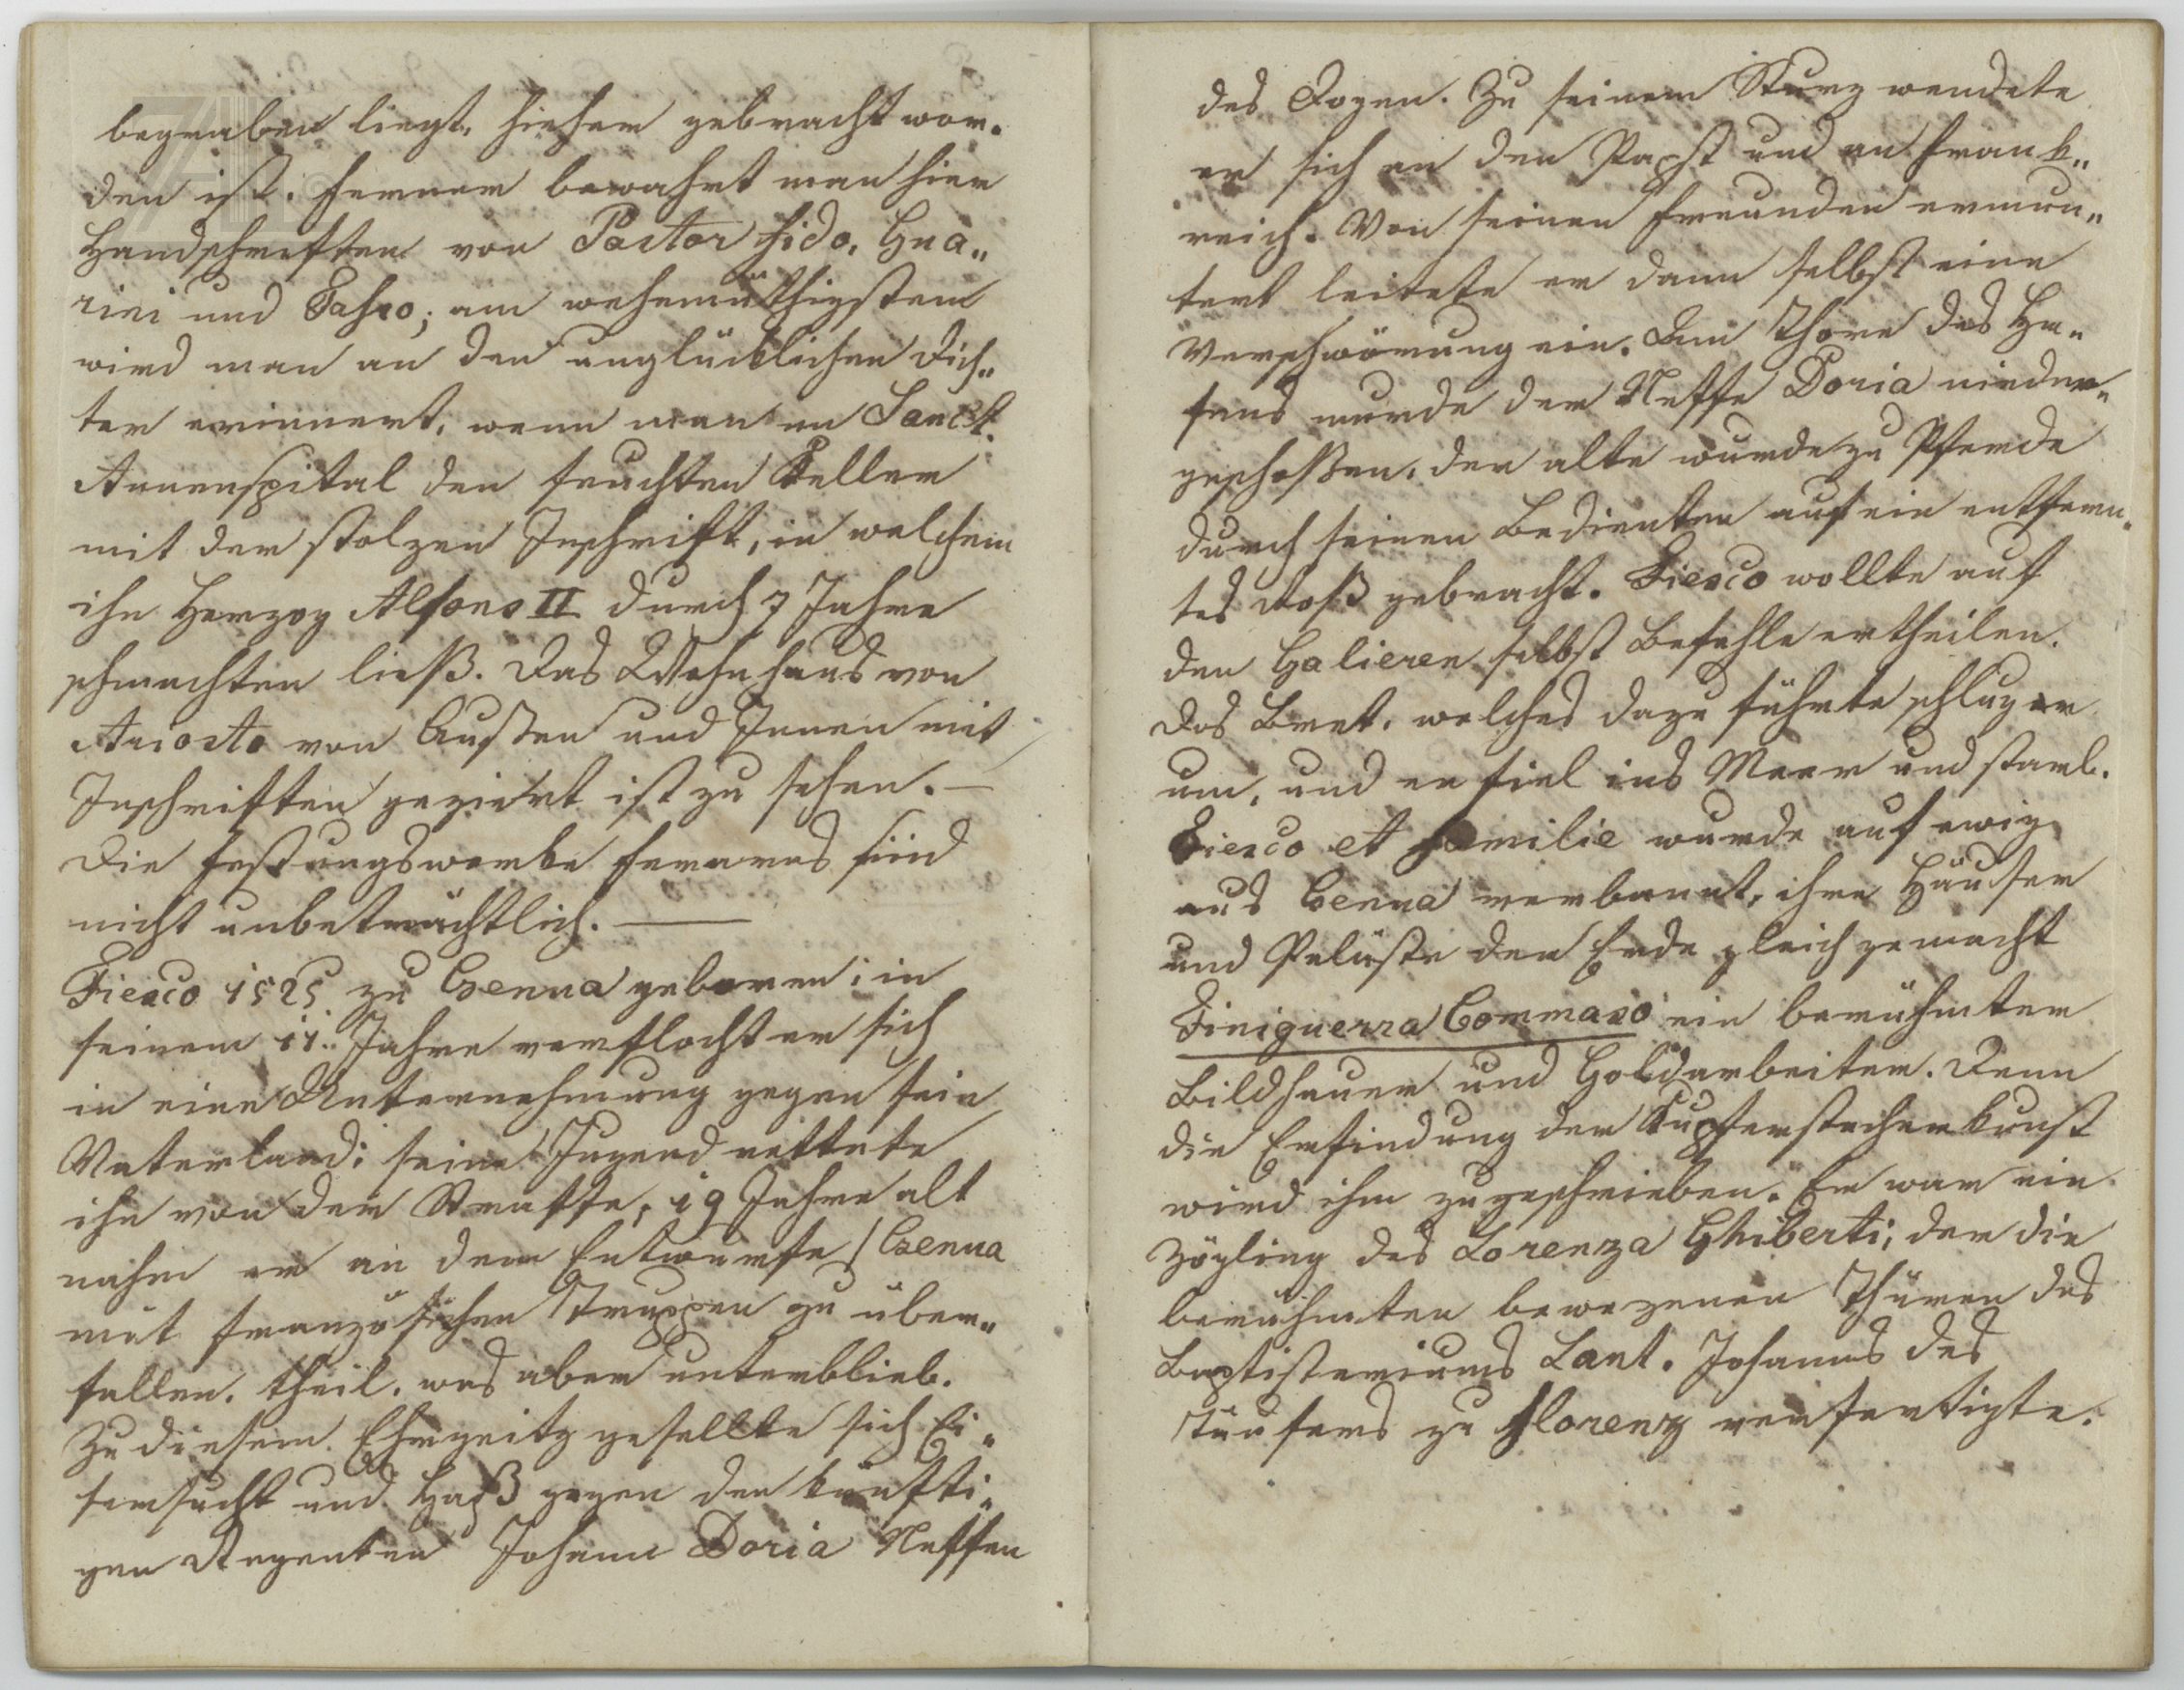 begraben liegt, hieher gebracht wor-
den ist. Ferner bewahrt man hier
Handschriften von Pastor fido, Gua-
rini und Tasso; am wehemüthigsten
wird man an den unglücklichen Dich-
ter erinnert, wenn man im Sanct.
Annenspital den feuchten Keller
mit der stolzen Inschrift, in welchem
ihn Herzog Alfons II durch 7 Jahre
schmachten ließ. Das Wohnhaus von
Ariosto von Außen und Innen mit
Inschriften geziert ist zu sehen. —
Die Festungswerke Ferraras sind
nicht unbeträchtlich. —
Fiesco 1525 zu Genua geboren; in
seinem 11. Jahre verflocht er sich
in eine Unternehmung gegen sein
Vaterland; seine Jugend rettete
ihn von der Straffe, 19 Jahre alt
nahm er an dem Entwurfe / Genua
mit französischen Truppen zu über-
fallen. theil, was aber unterblieb.
Zu diesem Ehrgeitz gesellte sich Ei-
fersucht und Haß gegen den künfti-
gen Regenten Johann Doria Neffen
des Dogen. Zu seinem Sturz wendete
er sich an den Papst und an Frank-
reich. Von seinen Freunden ermun-
tert leitete er dann selbst eine
Verschwörung ein. Am Thore des Ha-
fens wurde der Neffe Doria nieder-
geschoßen, der alte wurde zu Pferde
durch seinen Bedienten auf ein entfern-
tes Schloß gebracht. Fiesco wollte auf
den Galieren selbst Befehle ertheilen.
Das Bret, welches dazu führte schlug er
um, und er fiel ins Meer und starb.
Fiesco et Familie wurde auf ewig
aus Genua verbannt, ihre Häuser
und Paläste der Erde gleich gemacht
Finiguerra Tommaso ein berühmter
Bildhauer und Goldarbeiter. Denn
die Erfindung der Kupferstecherkunst
wird ihm zugeschrieben. Er war ein
Zögling des Lorenza Ghiberti, der die
berühmten Thüren des
Baptisteriums Sant. Johanns des
Täufers zu Florenz verfertigte.